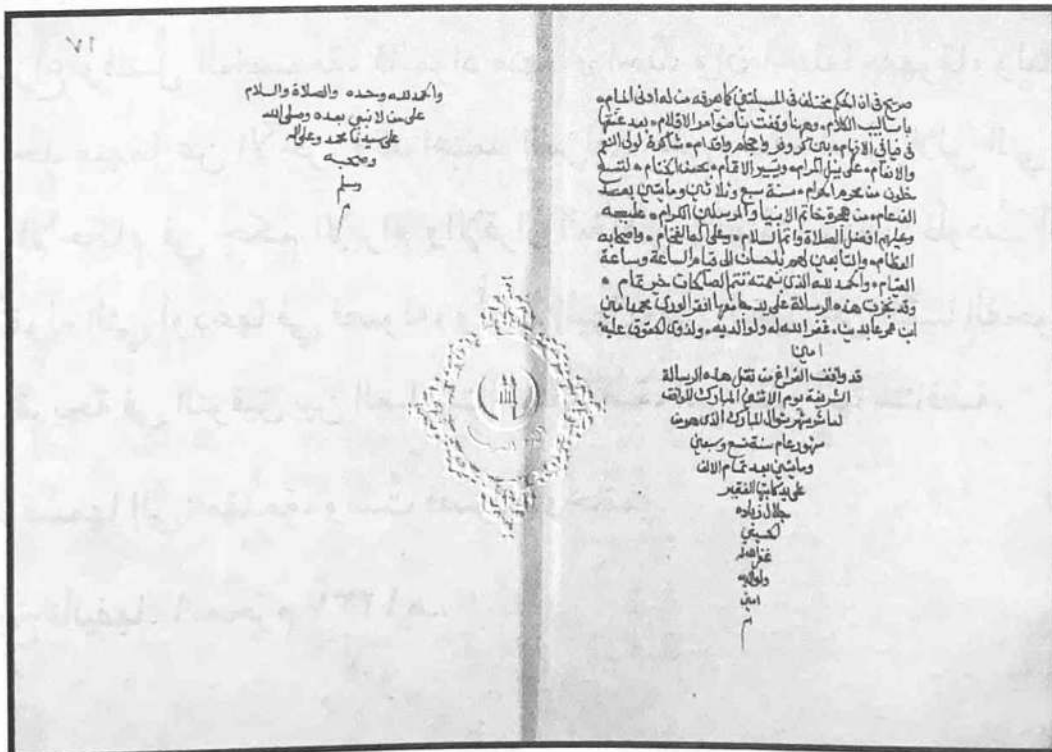 صريح في ان الحكم مختلف في المسيلتين كما يعرفه من له ادنى المام*
باساليب الكلام* وهنا وقفت بنا ضوامر الاقلام* بعد عنقها
في فيافي الافهام* بين كر وفر واحجام واقدام* شاكرة لولى النعم
والانعام* على نيل المرام* وتيسير الاتمام* بحسن الختام* لتسع
خلون من محرم الحرام* سنة سبع وثلاثين ومايتين بعد
الف عام* من هجرة خاتم الانبيا والمرسلين الكرام* عليه
وعليهم افضل الصلاة واتم السلام* وعلى اله الفخام* واصحابه
العظام* والتابعين لهم باحسان الى قيام الساعة وساعة
القيام* والحمد لله الذي بنعمته تتم الصالحات خير تمام *
وقد نجزت هذه الرسالة على يد جامعها افقر الورى محمد امين
ابن عمر عابدين* غفر الله له ولوالديه* ولذوي الحقوق عليه
امين
قد وافق الفراغ من نقل هذه الرسالة
الشريفة يوم الاثنين المبارك الموافق
لعاشر شهر شوال المبارك الذي هو من
شهور عام سنة تسع وسبعين
ومايتين بعد تمام الالف
على يد كاتبها الفقير
جلال زياده
الحسيني
غفر الله له
ولوالديه
امين
م
١٧
والحمد لله وحده والصلاة والسلام
على من لا نبي بعده وصلى الله
على سيدنا محمد وعلى اله
وصحبه
وسلم
م